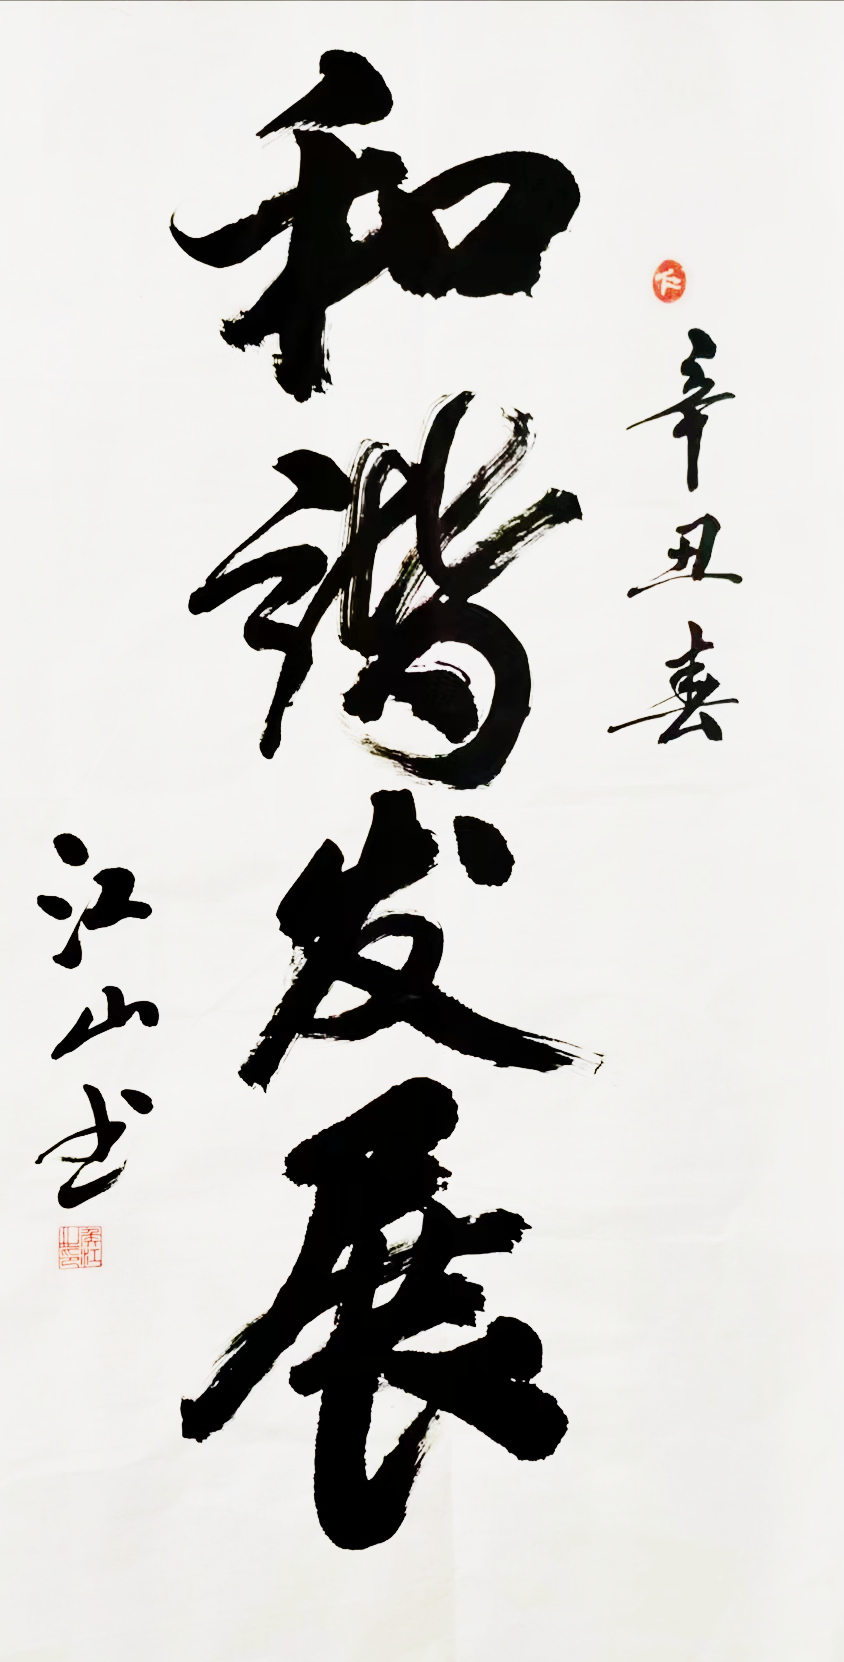 辛丑春
和谐发展
江山书